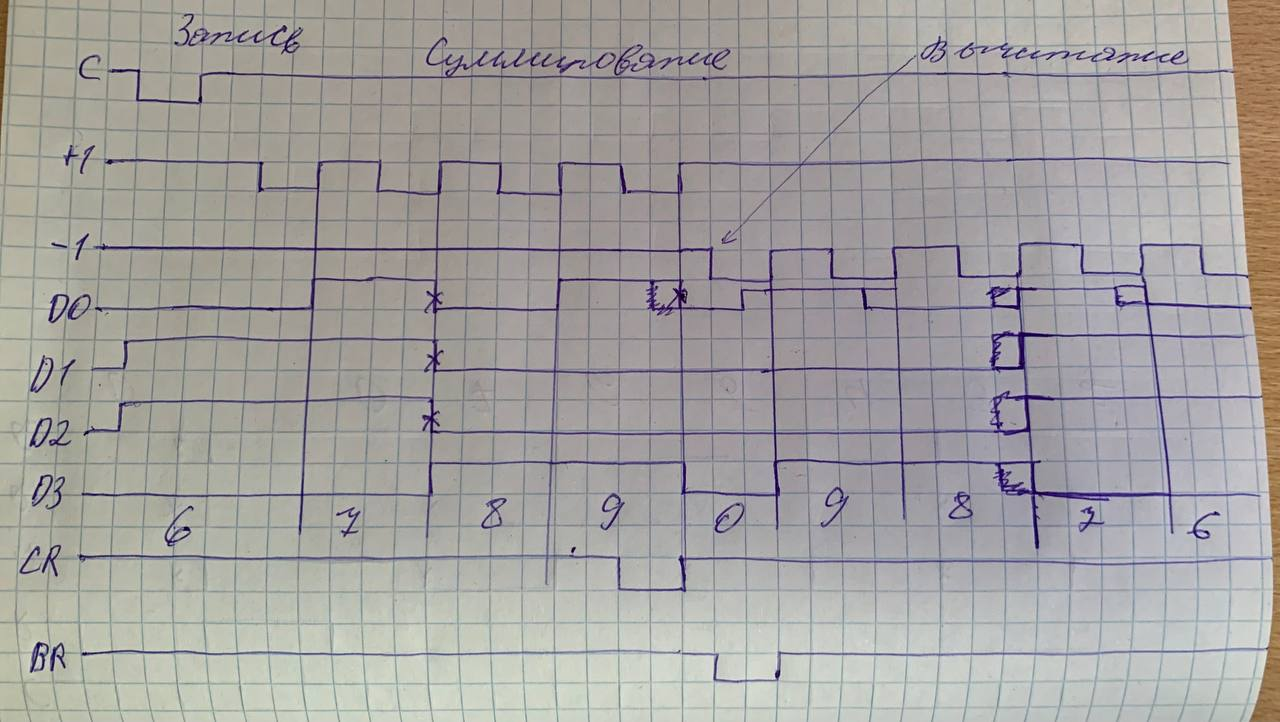 Запись
Суммирование
Вычитание
C
+1
-1
D0
D1
D2
D3
6 7 8 9 0 9 8 7 6
CR
BR